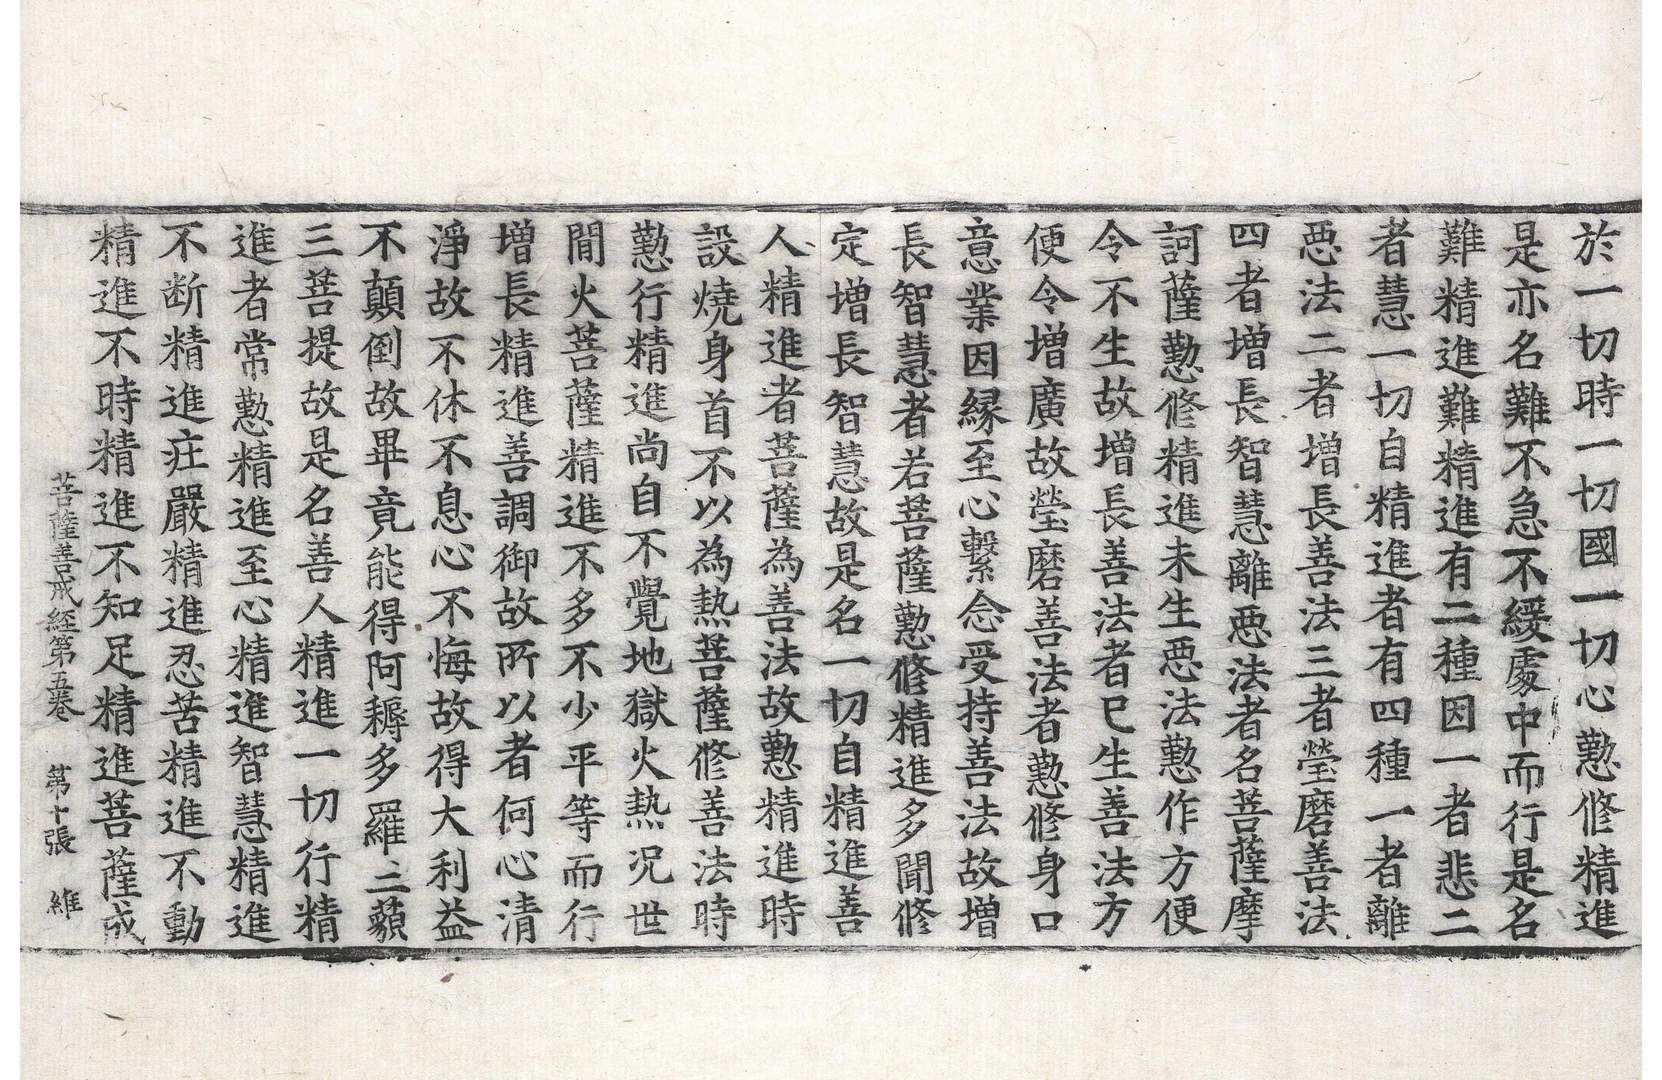 於一切時一切國一切心懃修精進
是亦名難不急不緩處中而行是名
難精進難精進有二種因一者悲二
者慧一切自精進者有四種一者離
惡法二者增長善法三者瑩磨善法
四者增長智慧離惡法者名菩薩摩
訶薩懃修精進未生惡法懃作方便
令不生故增長善法者已生善法方
便令增廣故瑩磨善法者懃修身口
意業因緣至心繫念受持善法故增
長智慧者若菩薩懃修精進多聞修
定增長智慧故是名一切自精進善
人精進者菩薩為善法故懃精進時
設燒身首不以為熱菩薩修善法時
懃行精進尚自不覺地獄火熱況世
間火菩薩精進不多不少平等而行
增長精進善調御故所以者何心清
淨故不休不息心不悔故得大利益
不顛倒故畢竟能得阿耨多羅三藐
三菩提故是名善人精進一切行精
進者常懃精進至心精進智慧精進
不断精進疘嚴精進忍苦精進不動
精進不時精進不知足精進菩薩成
菩薩善戒経第五卷　第十張　維